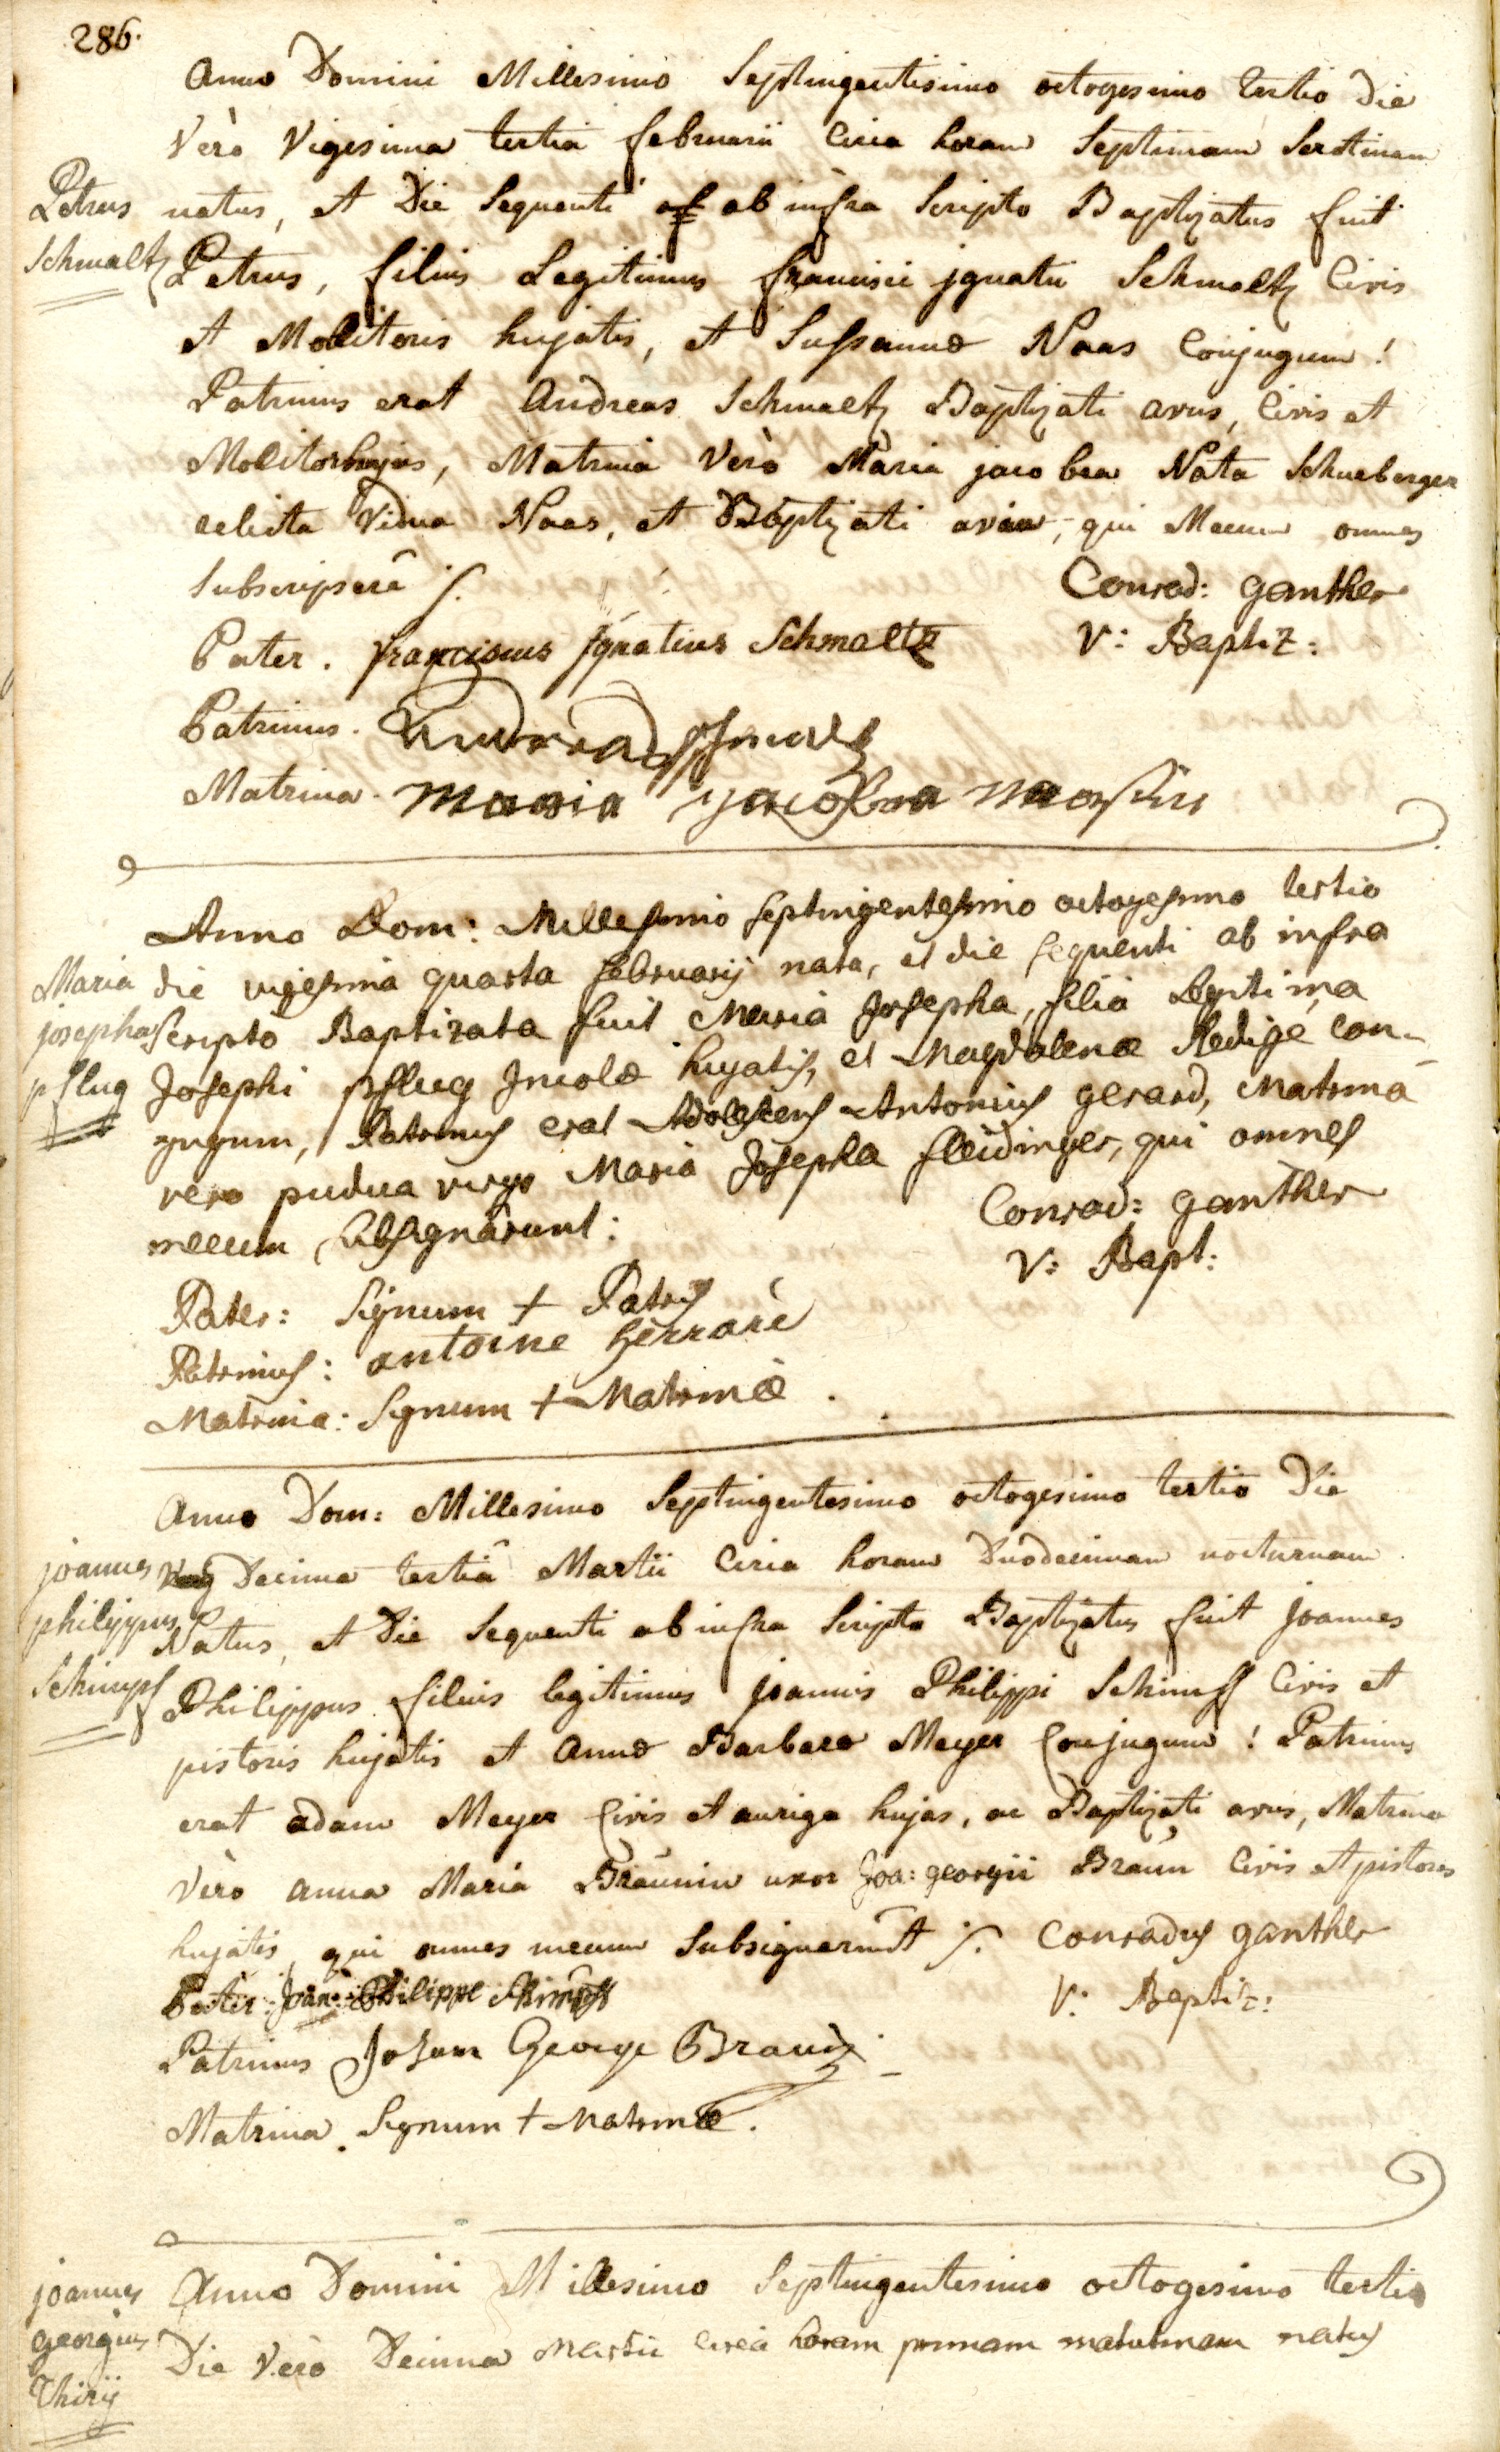 286.
Anno Domini Millesimo Septingentesimo octogesimo tertio die
Verò Vigesima tertia februarii Circa horam Septimam Serotinam
Petrus natus, et Die Sequenti ab infra Scripto Baptizatus fuit
Schmaltz Petrus, filius Legitimus francisci jgnatii Schmaltz Civis
et Molitoris hujatis, et Sussannæ Naas Conjugum!
Patrinus erat Andreas Schmaltz Baptizati avus, Civis et
Molitor hujas, Matrina Verò Maria jacobea Nata Schneberger
relicta Vidua Naas, et Baptizati avia, qui Mecum omnes
Subscripserê ·/.
Conrad: ganther
Pater. franciscus Jgnatius Schmaltz
V: Baptiz:
Patrinus. Andreas Schmaltz
Matrina. Maria yacobea naasin
Anno Dom: Millesimo septingentesimo octogesimo tertio
Maria die vigesima quarta februarij nata, et die sequenti ab infra
josepha scripto Baptizata fuit Maria Josepha, filia legitima
pflug Josephi pflug Jncolæ hujatis, et Magdalenæ Redige con-
jugum, Patrinus erat Adolescens Antonius gerard, Matrina
vero pudica virgo Maria Josepha fleidinger, qui omnes
mecum subsignârunt:
Conrad: ganther
V: Bapt:
Pater: Signum + Patris
Patrinus: antoine herrarè
Matrina: Signum + Matrinæ.
Anno Dom: Millesimo Septingentesimo octogesimo tertio Die
joannes Decima tertiâ Martii Circa horam Duodecimam nocturnam
philippus Natus, et Die Sequenti ab infra Scripto Baptizatus fuit joannes
Schimpf Philippus filius legitimus joannis Philippi Schimpf Civis et
pistoris hujatis et Annæ Barbaræ Meyer Conjugum! Patrinus
erat adam Meyer Civis et auriga hujas, ac Baptizati avus, Matrina
Vèro anna Maria Braunin uxor Joa: georgii Braun Civis et pistoris
hujatis, qui omnes mecum Subsignerunt ·/. Conradus ganther
Pater: Joan: Philippe Schimpff
V: Baptiz:
Patrinus Johann George Braun
Matrina Signum + Matrinæ.
joannes Anno Domini Millesimo Septingentesimo octogesimo tertio
georgius Die Verò Decima Martii circa horam primam matutinam natus
Thirij